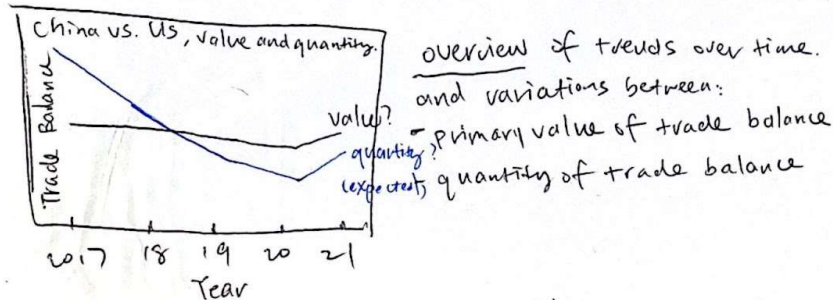 China vs. US, value and quantity.
Trade Balance
value?
quantity?
(expected)
2017 18 19 20 21
Year
overview of trends over time.
and variations between:
- primary value of trade balance
quantity of trade balance